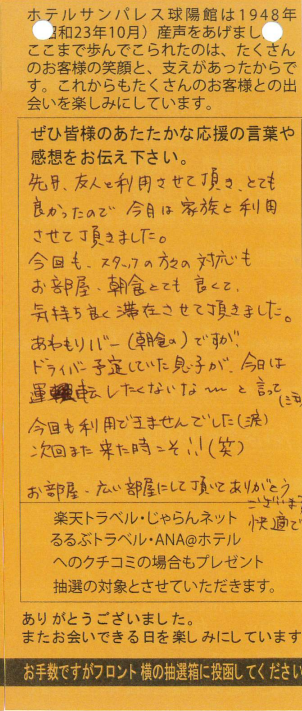 ホテルサンパレス球陽館は1948年
昭和23年10月）産声をあげまし
ここまで歩んでこられたのは、たくさん
のお客様の笑顔と、支えがあったからで
す。これからもたくさんのお客様との出
会いを楽しみにしています。
ぜひ皆様のあたたかな応援の言葉や
感想をお伝え下さい。
先月、友人と利用させて頂き、とても
良かったので 今月は家族と利用
させて頂きました。
今回も、スタッフの方々の対応も
お部屋、朝食とても良くて、
気持ち良く滞在させて頂きました。
あわもりバー(朝食の)ですが、
ドライバー予定していた息子が、今日は
運転したくないな〜〜と言って
今回も利用できませんでした(涙)
次回また来た時こそ!!(笑)
お部屋、広い部屋にして頂いてありがとう
ございます
快適で
楽天トラベル・じゃらんネット
るるぶトラベル・ANA@ホテル
へのクチコミの場合もプレゼント
抽選の対象とさせていただきます。
ありがとうございました。
またお会いできる日を楽しみにしています
お手数ですがフロント横の抽選箱に投函してください